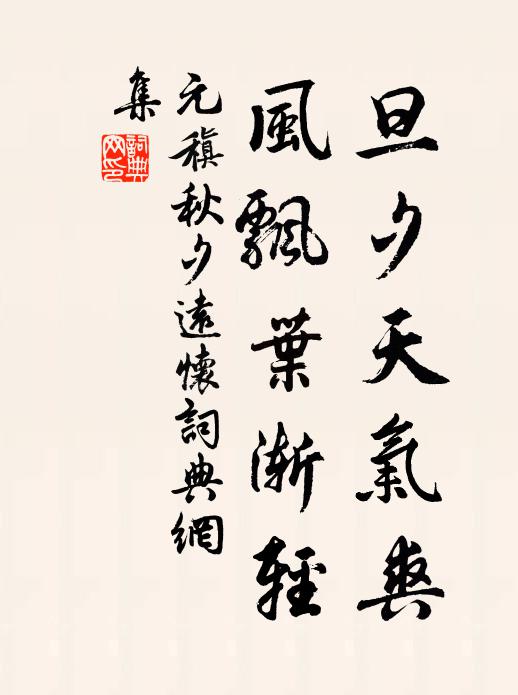 旦夕天氣爽
風飄葉漸輕
元稹秋夕遠懷詞典網
集
詞典
網印